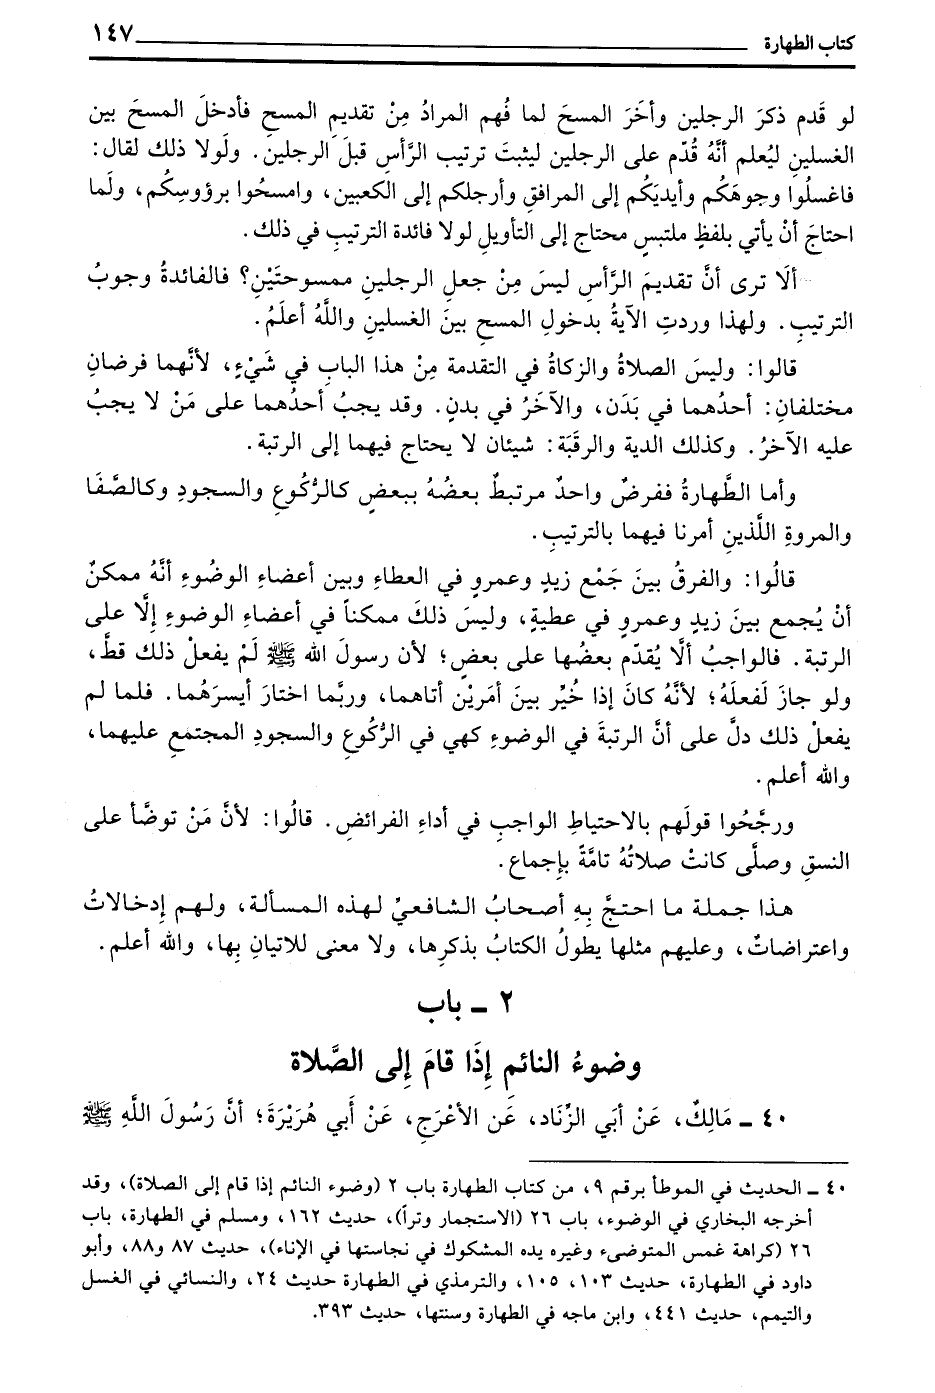 كتاب الطهارة ١٤٧
لو قَدم ذكرَ الرجلين وأخَرَ المسحَ لما فُهم المرادُ مِنْ تقديمِ المسحِ فأدخلَ المسحَ بين
الغسلينِ ليُعلم أنَّهُ قُدّم على الرجلين ليثبتَ ترتيب الرَّأس قبلَ الرجلينِ. ولَولا ذلك لقال:
فاغسلُوا وجوهَكُم وأيديَكُم إلى المرافقِ وأرجلكم إلى الكعبين، وامسحُوا برؤوسِكُم، ولَما
احتاجَ أنْ يأتي بلفظٍ ملتبسٍ محتاج إلى التأويلِ لولا فائدة الترتيبِ في ذلك.
ألَا ترى أنَّ تقديمَ الرَّأس ليسَ مِنْ جعلِ الرجلينِ ممسوحتَيْنِ؟ فالفائدةُ وجوبُ
الترتيبِ. ولهذا وردتِ الآيةُ بدخولِ المسحِ بينَ الغسلين واللَّهُ أعلَمُ.
قالوا: وليسَ الصلاةُ والزكاةُ في التقدمة مِنْ هذا البابِ في شَيْءٍ، لأنَّهما فرضانِ
مختلفانِ: أحدُهما في بَدَن، والآخَرُ في بدنٍ. وقد يجبُ أحدُهما على مَنْ لا يجبُ
عليه الآخرُ. وكذلك الدية والرقَبَة: شيئان لا يحتاج فيهما إلى الرتبة.
وأما الطَّهارةُ ففرضٌ واحدٌ مرتبطٌ بعضُهُ ببعضٍ كالرُّكوعِ والسجودِ وكالصَّفَا
والمروةِ اللَّذينِ أمرنا فيهما بالترتيبِ.
قالُوا: والفرقُ بينَ جَمْع زيدٍ وعمروٍ في العطاءِ وبين أعضاءِ الوضُوءِ أنَّهُ ممكنٌ
أنْ يُجمع بينَ زيدٍ وعمروٍ في عطيةٍ، وليسَ ذلكَ ممكناً في أعضاءِ الوضوءِ إلَّا على
الرتبة. فالواجبُ ألَّا يُقدّم بعضُها على بعضٍ؛ لأن رسولَ الله ﷺ لَمْ يفعلْ ذلك قطَّ،
ولو جازَ لَفعلَهُ؛ لأنَّهُ كانَ إذا خُيِّر بينَ أمرَيْن أتاهما، وربَّما اختارَ أيسرَهُما. فلما لم
يفعلْ ذلك دلَّ على أنَّ الرتبةَ في الوضوءِ كهي في الرُّكُوعِ والسجودِ المجتمعِ عليهما،
والله أعلم.
ورجَّحُوا قولَهم بالاحتياطِ الواجبِ في أداءِ الفرائضِ. قالُوا: لأنَّ مَنْ توضَّأ على
النسقِ وصلَّى كانتْ صلاتُهُ تامَّةً بإجماع.
هذا جملة ما احتجَّ بِهِ أصحابُ الشافعيِّ لهذه المسألة، ولهم إدخالاتُ
واعتراضاتٌ، وعليهم مثلها يطولُ الكتابُ بذكرِها، ولا معنى للاتيانِ بِها، والله أعلم.
٢ ـ باب
وضوءُ النائمِ إِذَا قامَ إِلى الصَّلاة
٤٠ ـ مَالِكٌ، عَنْ أبَي الزِّنَاد، عَن الأعْرَجِ، عَنْ أَبي هُرَيْرَةَ؛ أنَّ رَسُولَ اللَّهِ ﷺ
٤٠ ـ الحديث في الموطأ برقم ٩، من كتاب الطهارة باب ٢ (وضوء النائم إذا قام إلى الصلاة)، وقد
أخرجه البخاري في الوضوء، باب ٢٦ (الاستجمار وتراً)، حديث ١٦٢، ومسلم في الطهارة، باب
٢٦ (كراهة غمس المتوضىء وغيره يده المشكوك في نجاستها في الإناء)، حديث ٨٧ و٨٨، وأبو
داود في الطهارة، حديث ١٠٣، ١٠٥، والترمذي في الطهارة حديث ٢٤، والنسائي في الغسل
والتيمم، حديث ٤٤١، وابن ماجه في الطهارة وسننها، حديث ٣٩٣.